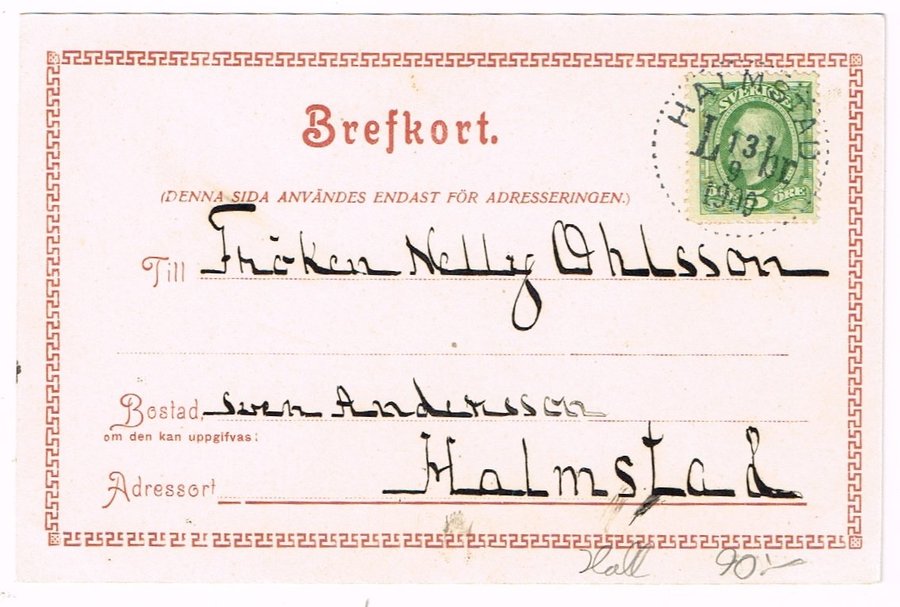 Brefkort.
(DENNA SIDA ANVÄNDES ENDAST FÖR ADRESSERINGEN.)
SVERIGE
5 ÖRE
HALMSTAD
L 13 br
9
1905
Till Fröken Nelly Ohlsson
Bostad, Sven Andersson
om den kan uppgifvas:
Adressort Halmstad
Hall 90:-